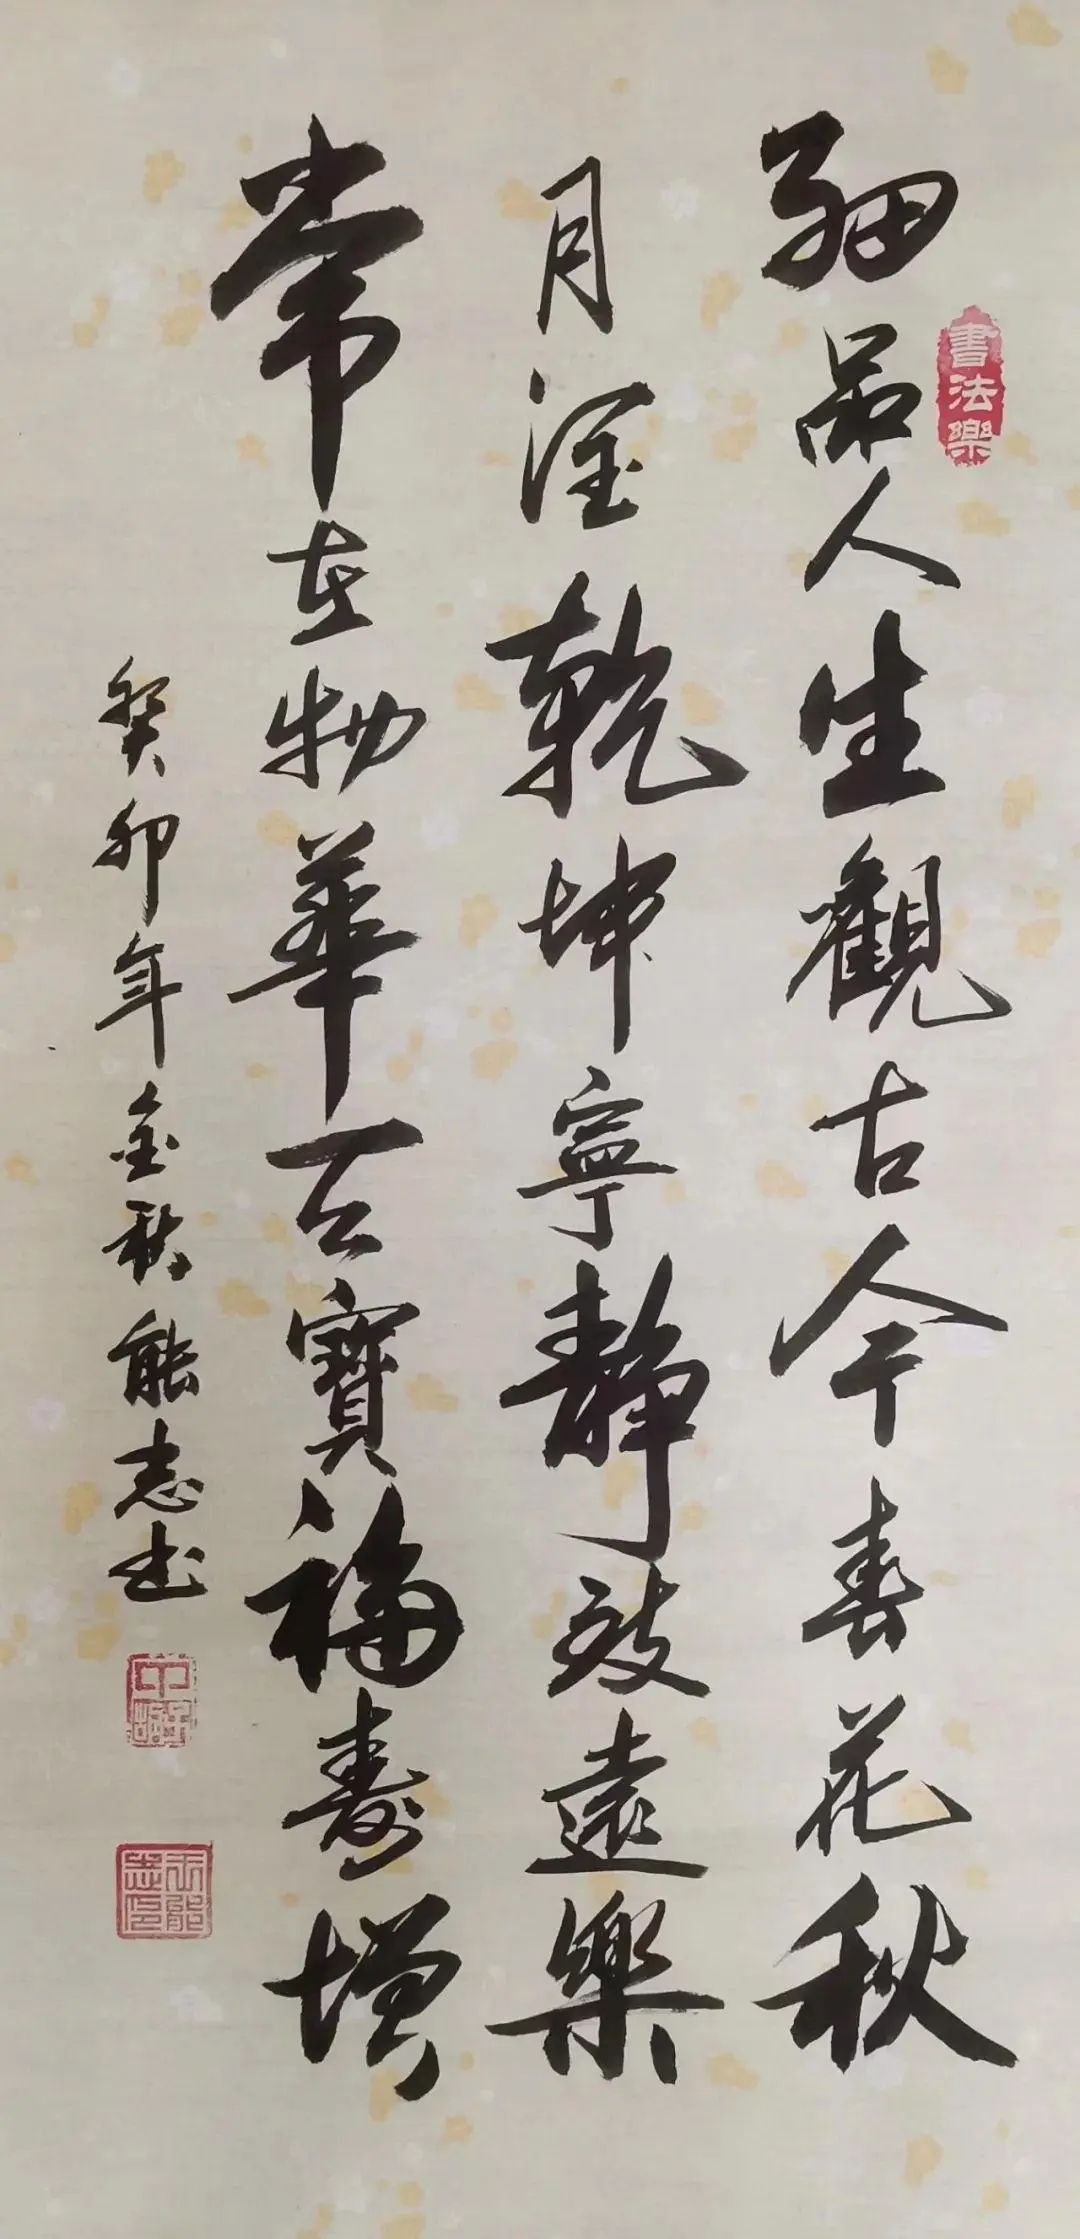 細品人生觀古今春花秋
月乾坤寧靜致遠樂
常在物華天寶福壽增
癸卯年金秋能志书
書法樂